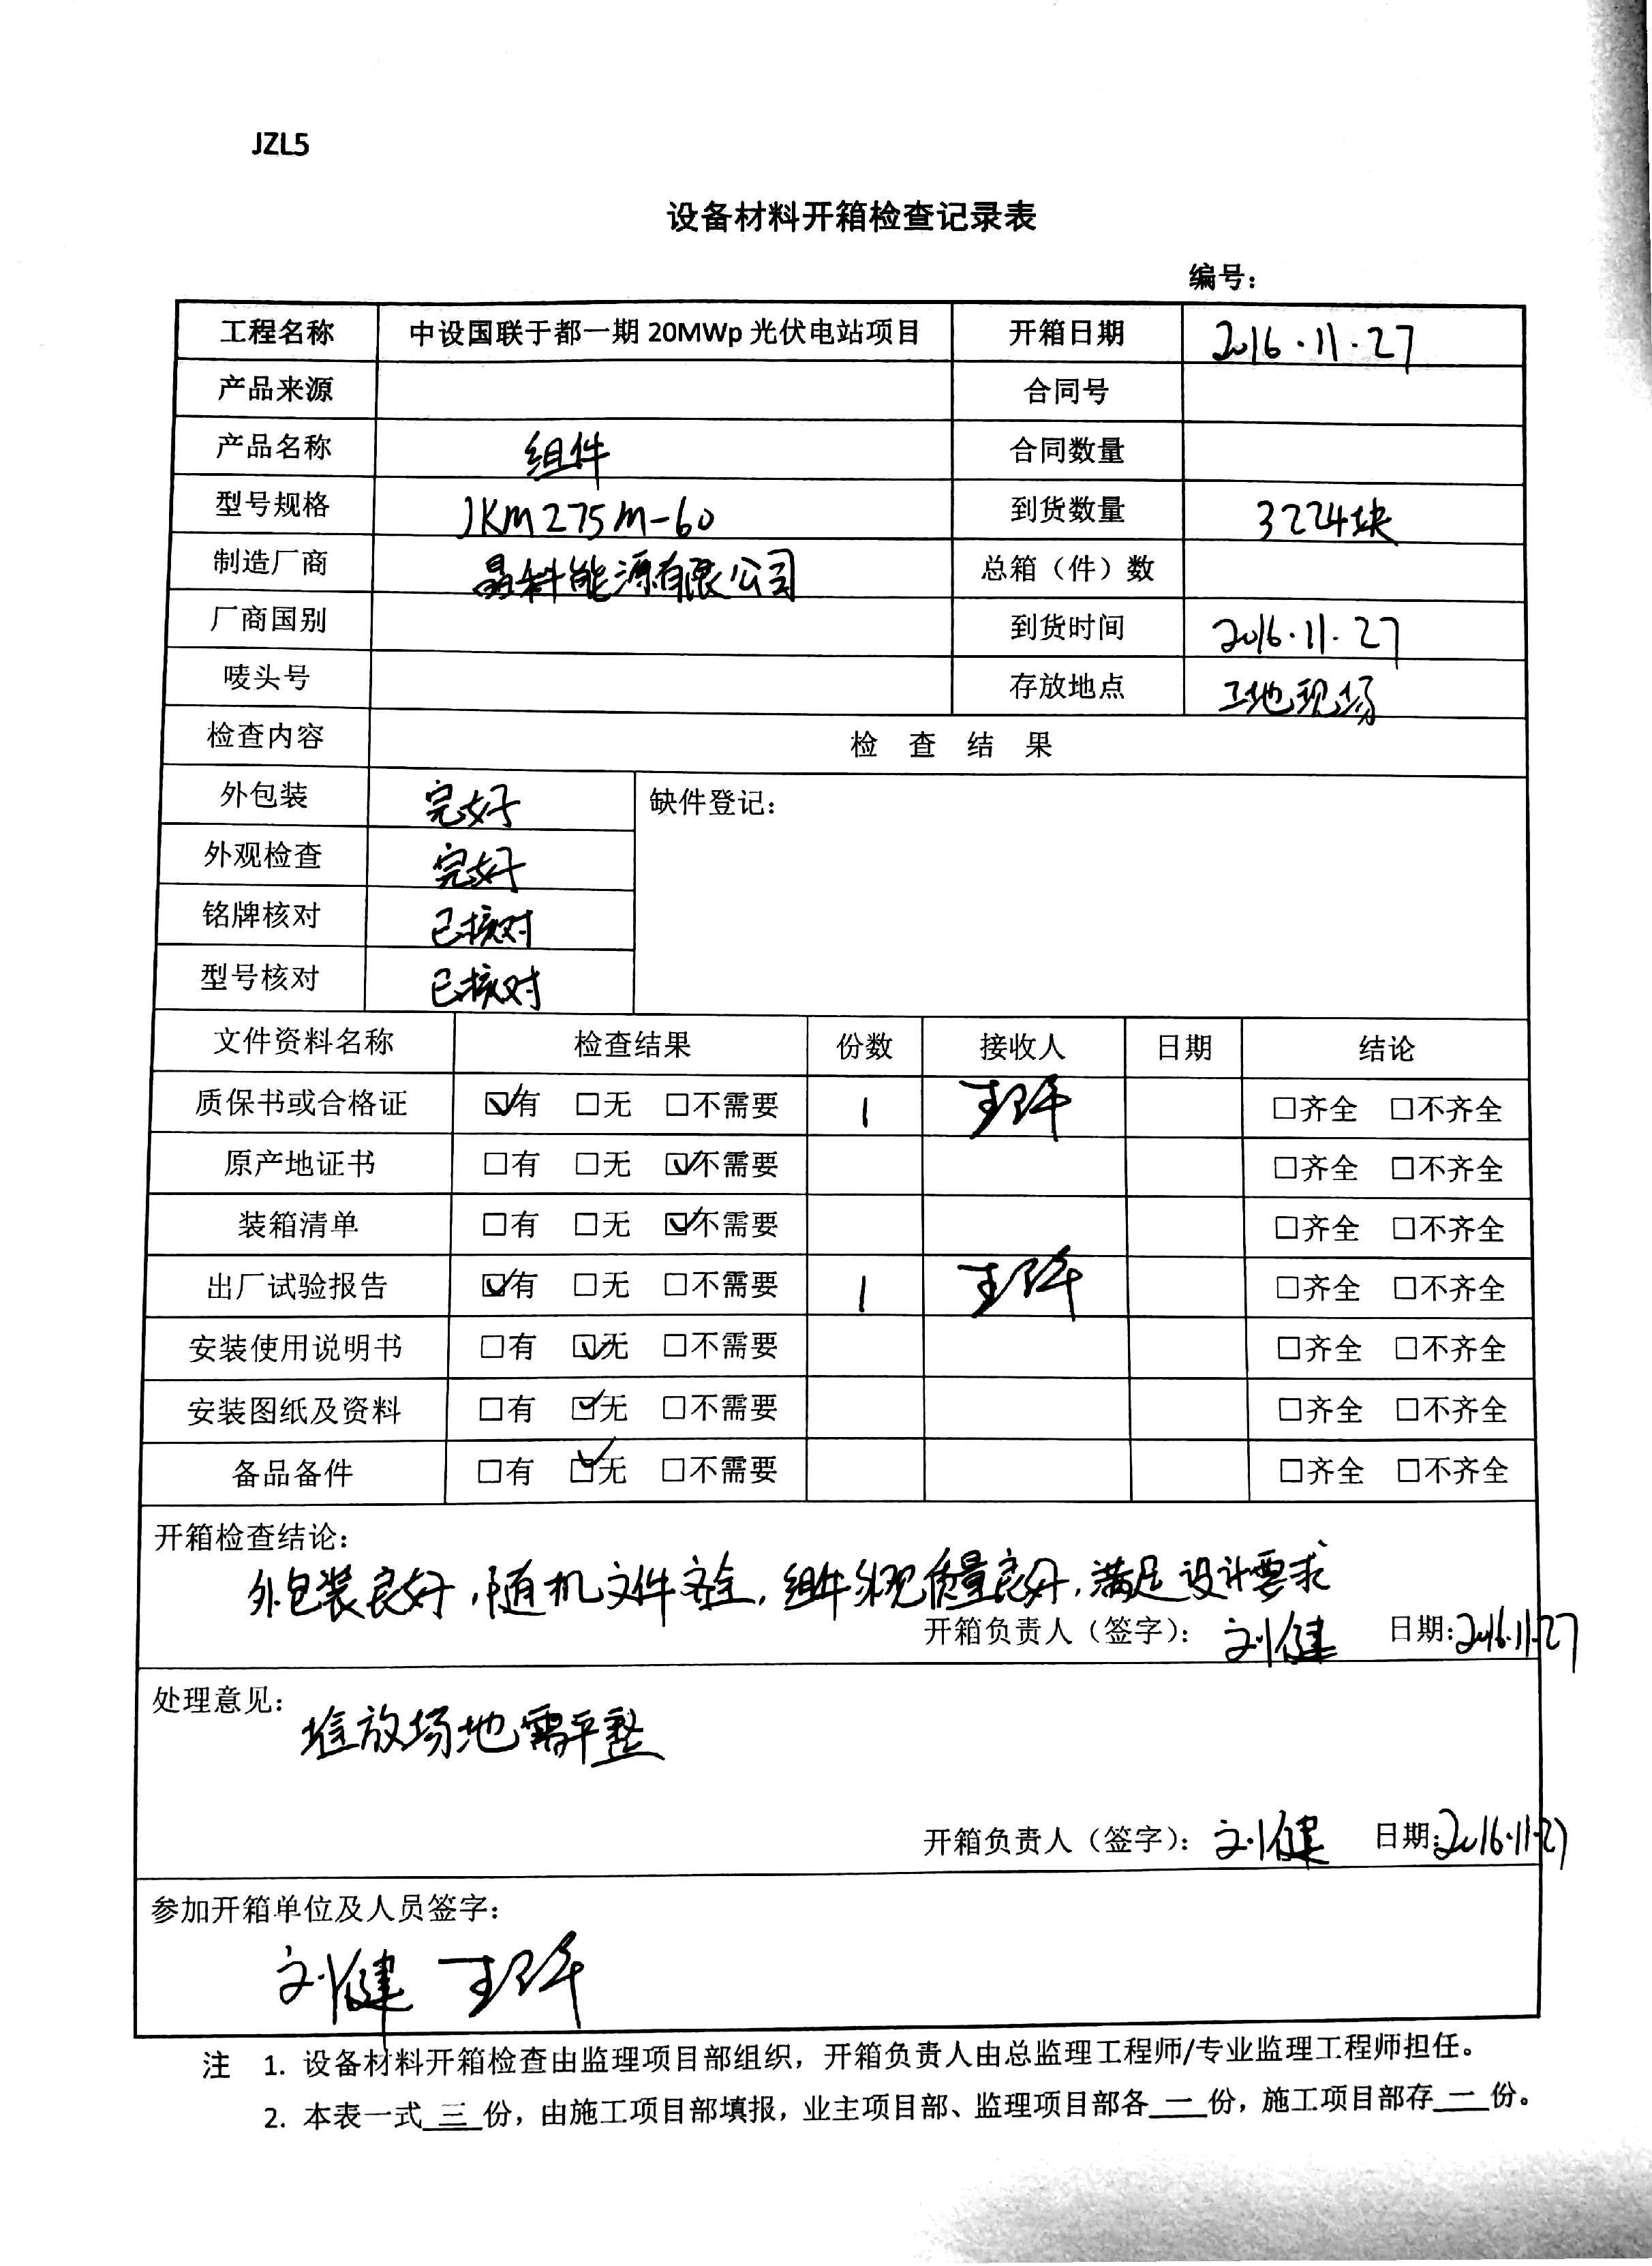 JZL5
设备材料开箱检查记录表
编号：
工程名称 中设国联于都一期 20MWp 光伏电站项目 开箱日期 2016.11.27
产品来源 合同号
产品名称 组件 合同数量
型号规格 JKM275M-60 到货数量 3224块
制造厂商 晶科能源有限公司 总箱（件）数
厂商国别 到货时间 2016.11.27
唛头号 存放地点 工地现场
检查内容 检 查 结 果
外包装 完好 缺件登记：
外观检查 完好
铭牌核对 已核对
型号核对 已核对
文件资料名称 检查结果 份数 接收人 日期 结论
质保书或合格证 ☑有 □无 □不需要 1 □齐全 □不齐全
原产地证书 □有 □无 ☑不需要 □齐全 □不齐全
装箱清单 □有 □无 ☑不需要 □齐全 □不齐全
出厂试验报告 ☑有 □无 □不需要 1 □齐全 □不齐全
安装使用说明书 □有 ☑无 □不需要 □齐全 □不齐全
安装图纸及资料 □有 ☑无 □不需要 □齐全 □不齐全
备品备件 □有 ☑无 □不需要 □齐全 □不齐全
开箱检查结论：
外包装良好，随机文件齐全，组件外观质量良好，满足设计要求
开箱负责人（签字）： 刘健 日期：2016.11.27
处理意见：
堆放场地需平整
开箱负责人（签字）： 刘健 日期：2016.11.27
参加开箱单位及人员签字：
刘健
注 1. 设备材料开箱检查由监理项目部组织，开箱负责人由总监理工程师/专业监理工程师担任。
2. 本表一式 三 份，由施工项目部填报，业主项目部、监理项目部各 一 份，施工项目部存 一 份。